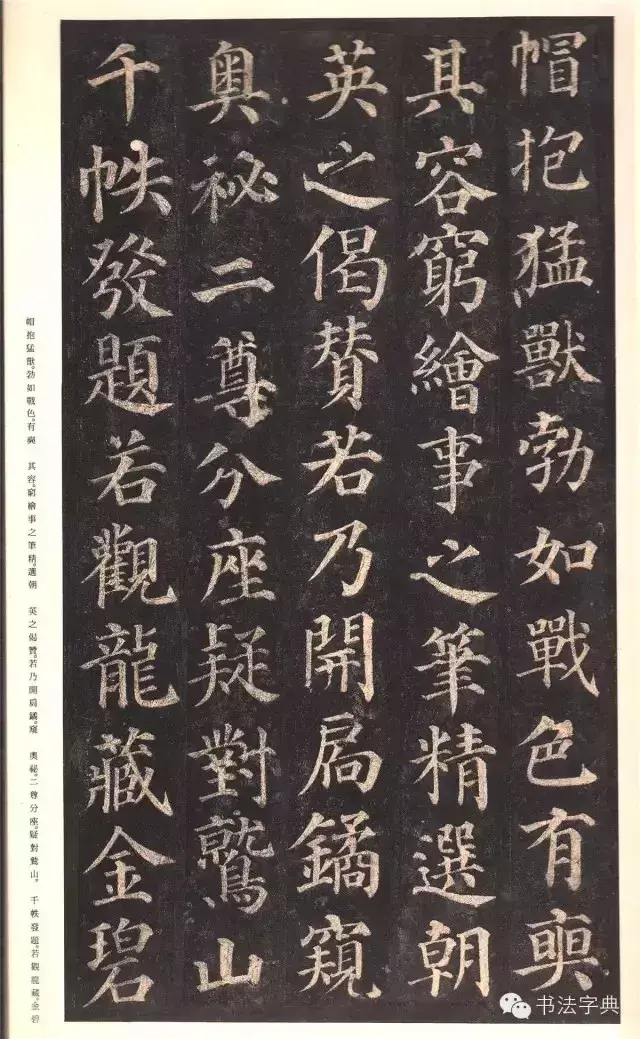 帽抱猛獸勃如戰色有奭
其容窮繪事之筆精選朝
英之偈贊若乃開扃鐍窺
奧祕二尊分座疑對鷲山
千帙發題若觀龍藏金碧
帽抱猛獸。勃如戰色。有奭　其容。窮繪事之筆精。選朝　英之偈贊。若乃開扃鐍。窺　奧祕。二尊分座。疑對鷲山。　千帙發題。若觀龍藏。金碧
书法字典